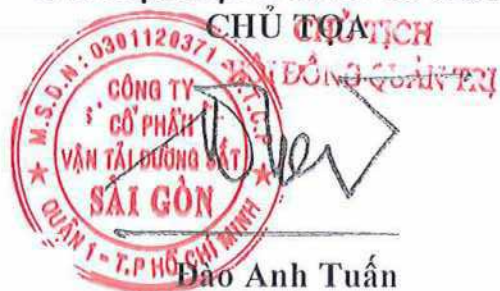 CHỦ TỌA
CHỦ TỊCH
HỘI ĐỒNG QUẢN TRỊ
M.S.D.N: 0301120371 - C.T.C.P
CÔNG TY
CỔ PHẦN
VẬN TẢI ĐƯỜNG SẮT
SÀI GÒN
QUẬN 1 - T.P HỒ CHÍ MINH
Đào Anh Tuấn